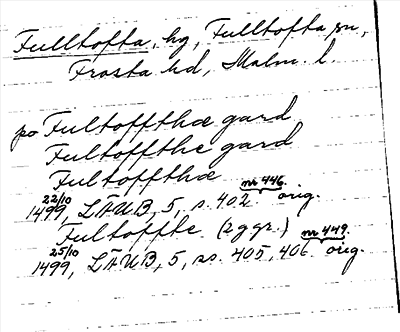 Fulltofta, hg, Fulltofta sn,
Frosta hd, Malm. l.
på Fultoffthæ gard
Fultoffthe gard
Fultoffthæ
22/10 1499, LÄUB, 5, s. 402 nr 446. orig.
Fultoffte (2 ggr.)
25/10 1499, LÄUB, 5, ss. 405, 406 nr 449. orig.